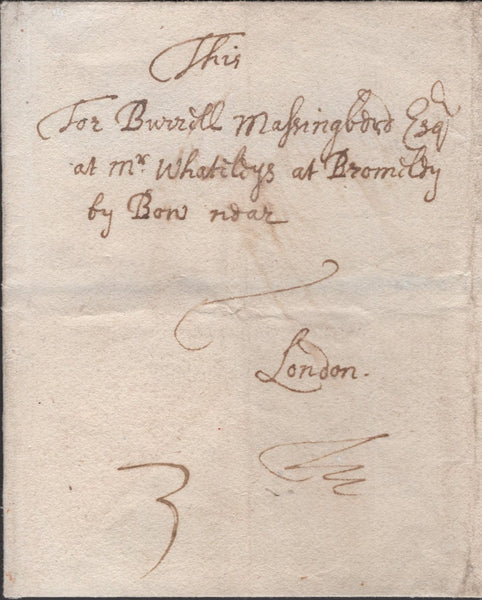 This
For Burrell Massingberd Esqr
at Mr. Whateleys at Bromeley
by Bow near
London.
3